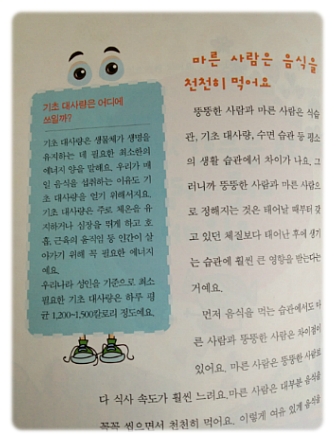 기초 대사량은 어디에
쓰일까?
기초 대사량은 생물체가 생명을
유지하는 데 필요한 최소한의
에너지 양을 말해요. 우리가 매
일 음식을 섭취하는 이유도 기
초 대사량을 얻기 위해서지요.
기초 대사량은 주로 체온을 유
지하거나 심장을 뛰게 하고 호
흡, 근육의 움직임 등 인간이 살
아가기 위해 꼭 필요한 에너지
예요.
우리나라 성인을 기준으로 최소
필요한 기초 대사량은 하루 평
균 1,200~1,500칼로리 정도예요.
마른 사람은 음식을
천천히 먹어요
뚱뚱한 사람과 마른 사람은 식습
관, 기초 대사량, 수면 습관 등 평소
의 생활 습관에서 차이가 나요. 그
러니까 뚱뚱한 사람과 마른 사람으
로 정해지는 것은 태어날 때부터 갖
고 있던 체질보다 태어난 후에 생기
는 습관에 훨씬 큰 영향을 받는다는
거예요.
먼저 음식을 먹는 습관에서도 마
른 사람과 뚱뚱한 사람은 차이점이
있어요. 마른 사람은 뚱뚱한 사람보
다 식사 속도가 훨씬 느려요. 마른 사람은 대부분 음식을
꼭꼭 씹으면서 천천히 먹어요. 이렇게 여유 있게 음식을